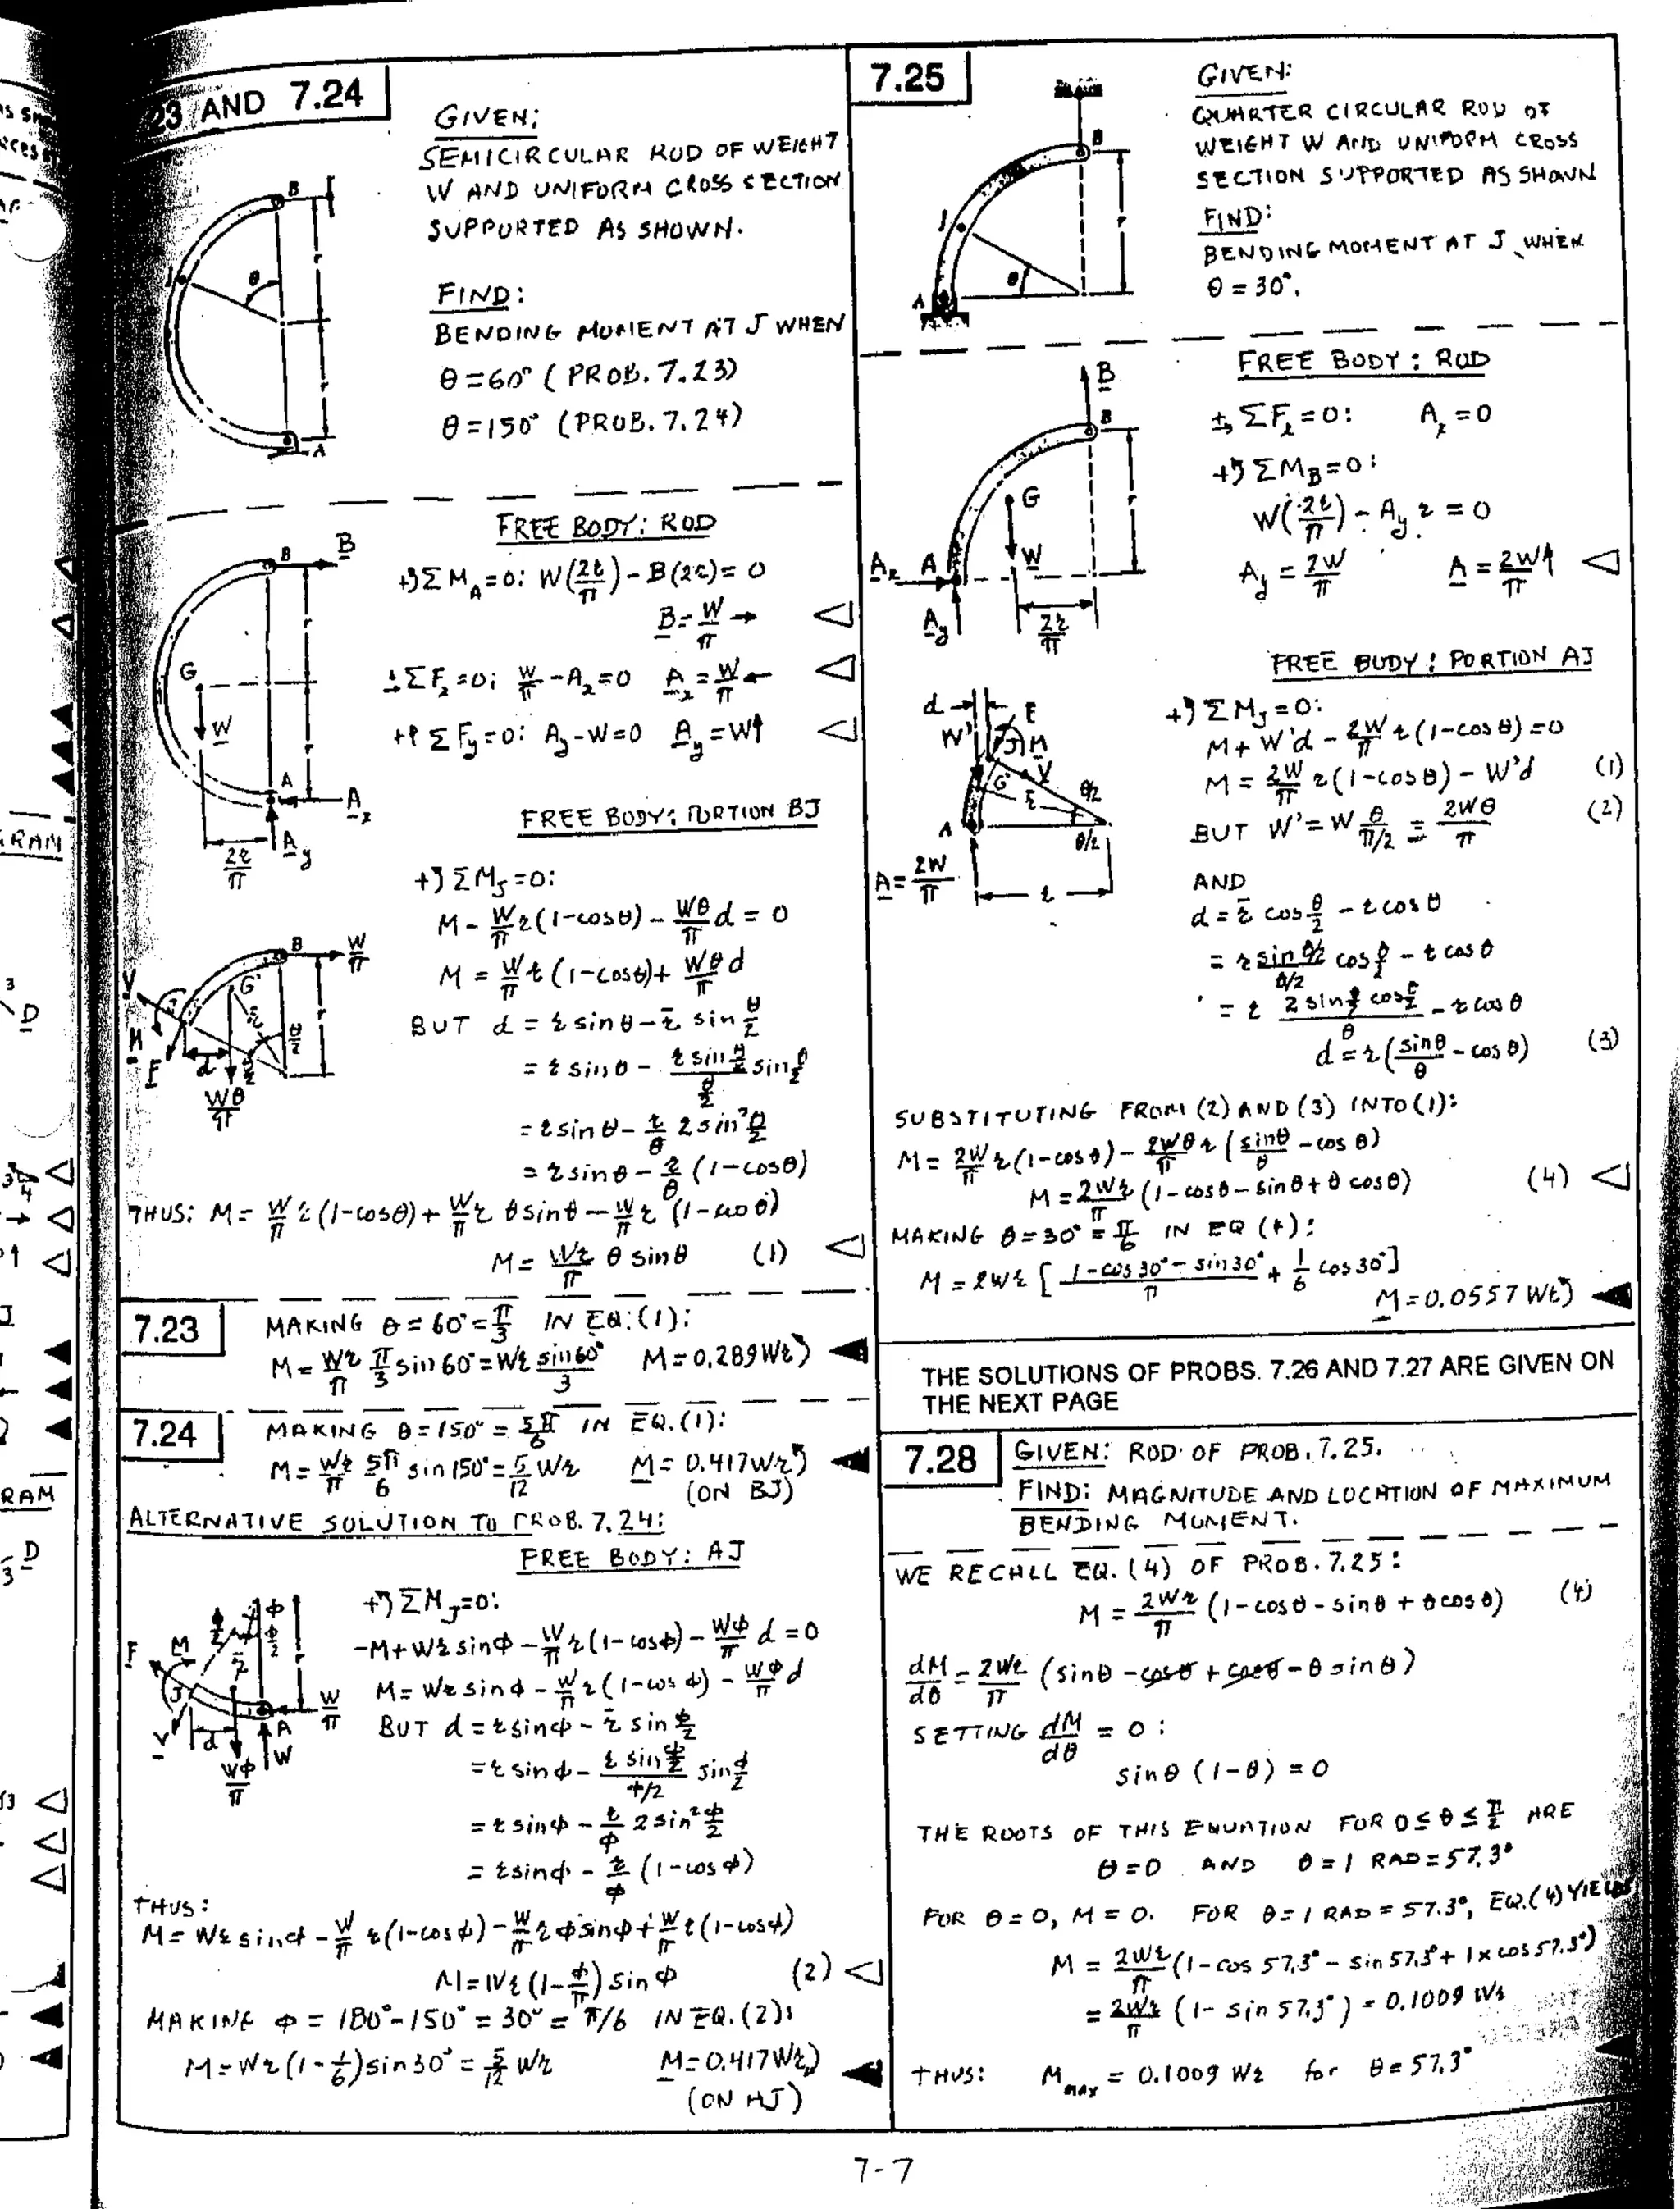 23 AND 7.24
GIVEN:
SEMICIRCULAR ROD OF WEIGHT
W AND UNIFORM CROSS SECTION
SUPPORTED AS SHOWN.
FIND:
BENDING MOMENT AT J WHEN
θ = 60° (PROB. 7.23)
θ = 150° (PROB. 7.24)
B
J
θ
r
r
A
FREE BODY: ROD
+↺ΣM_A=0: W(2r/π) - B(2r) = 0
B = W/π →
ΣF_x=0: W/π - A_x=0 A_x = W/π ←
+↑ΣF_y=0: A_y - W=0 A_y = W↑
B
B
r
G
W
r
A
A_x
A_y
2r/π
FREE BODY: PORTION BJ
+↺ΣM_J=0:
M - W/π r(1-cosθ) - Wθ/π d = 0
M = W/π r(1-cosθ) + Wθ/π d
BUT d = r sinθ - r̄ sin θ/2
= r sinθ - (r sin θ/2)/(θ/2) sin θ/2
= r sinθ - r/θ 2 sin² θ/2
= r sinθ - r/θ (1-cosθ)
B
W/π
V
G'
r
M
F
d
θ/2
Wθ/π
THUS: M = W/π r(1-cosθ) + W/π r θ sinθ - W/π r (1-cosθ)
M = Wr/π θ sinθ (1)
7.23
MAKING θ = 60° = π/3 IN EQ.(1):
M = Wr/π π/3 sin 60° = Wr sin60°/3 M = 0.289Wr
7.24
MAKING θ = 150° = 5π/6 IN EQ.(1):
M = Wr/π 5π/6 sin 150° = 5/12 Wr M = 0.417Wr
(ON BJ)
ALTERNATIVE SOLUTION TO PROB. 7.24:
FREE BODY: AJ
+↺ΣM_J=0:
-M + Wr sinφ - W/π r(1-cosφ) - Wφ/π d = 0
M = Wr sinφ - W/π r(1-cosφ) - Wφ/π d
BUT d = r sinφ - r̄ sin φ/2
= r sinφ - (r sin φ/2)/(φ/2) sin φ/2
= r sinφ - r/φ 2 sin² φ/2
= r sinφ - r/φ (1-cosφ)
F
M
J
V
d
Wφ/π
A
W
W/π
THUS:
M = Wr sinφ - W/π r(1-cosφ) - W/π r φ sinφ + W/π r(1-cosφ)
M = Wr(1-φ/π) sinφ (2)
MAKING φ = 180°-150° = 30° = π/6 IN EQ.(2):
M = Wr(1-1/6) sin30° = 5/12 Wr M = 0.417Wr
(ON AJ)
7.25
GIVEN:
QUARTER CIRCULAR ROD OF
WEIGHT W AND UNIFORM CROSS
SECTION SUPPORTED AS SHOWN
FIND:
BENDING MOMENT AT J WHEN
θ = 30°.
B
J
θ
r
A
FREE BODY: ROD
ΣF_x=0: A_x=0
+↺ΣM_B=0:
W(2r/π) - A_y r = 0
A_y = 2W/π A = 2W/π ↑
B
B
G
r
W
A_x A
A_y
2r/π
FREE BODY: PORTION AJ
+↺ΣM_J=0:
M + W'd - 2W/π r(1-cosθ) = 0
M = 2W/π r(1-cosθ) - W'd (1)
BUT W' = W θ/(π/2) = 2Wθ/π (2)
AND
d = r̄ cos θ/2 - r cosθ
= r (sin θ/2)/(θ/2) cos θ/2 - r cosθ
= r (2 sin θ/2 cos θ/2)/θ - r cosθ
d = r(sinθ/θ - cosθ) (3)
d
F
W'
M
V
G'
r̄
θ/2
θ/2
A
A = 2W/π
r
SUBSTITUTING FROM (2) AND (3) INTO (1):
M = 2W/π r(1-cosθ) - 2Wθ/π r(sinθ/θ - cosθ)
M = 2Wr/π (1-cosθ-sinθ+θ cosθ) (4)
MAKING θ = 30° = π/6 IN EQ (4):
M = 2Wr [(1-cos30°-sin30°)/π + 1/6 cos30°]
M = 0.0557 Wr
THE SOLUTIONS OF PROBS. 7.26 AND 7.27 ARE GIVEN ON
THE NEXT PAGE
7.28
GIVEN: ROD OF PROB. 7.25.
FIND: MAGNITUDE AND LOCATION OF MAXIMUM
BENDING MOMENT.
WE RECALL EQ. (4) OF PROB. 7.25:
M = 2Wr/π (1-cosθ-sinθ+θcosθ) (4)
dM/dθ = 2Wr/π (sinθ - cosθ + cosθ - θ sinθ)
SETTING dM/dθ = 0:
sinθ (1-θ) = 0
THE ROOTS OF THIS EQUATION FOR 0 ≤ θ ≤ π/2 ARE
θ = 0 AND θ = 1 RAD = 57.3°
FOR θ = 0, M = 0. FOR θ = 1 RAD = 57.3°, EQ.(4) YIELDS
M = 2Wr/π (1-cos 57.3° - sin 57.3° + 1×cos 57.3°)
= 2Wr/π (1- sin 57.3°) = 0.1009 Wr
THUS: M_max = 0.1009 Wr for θ = 57.3°
7-7